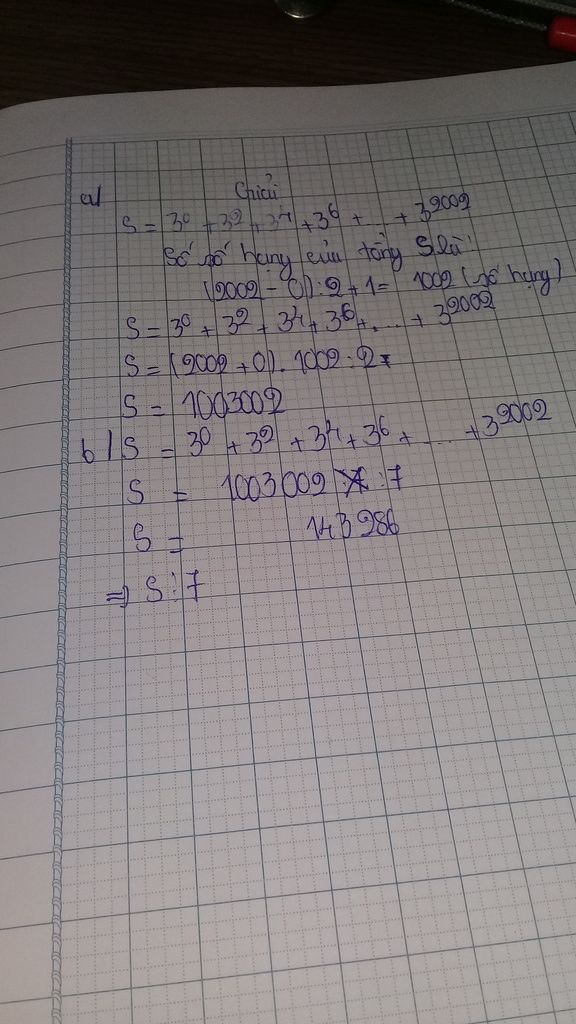 Giải
a/
S = 3⁰ + 3² + 3⁴ + 3⁶ + ... + 3²⁰⁰²
Số số hạng của tổng S là:
(2002 - 0) : 2 + 1 = 1002 (số hạng)
S = 3⁰ + 3² + 3⁴ + 3⁶ + ... + 3²⁰⁰²
S = (2002 + 0) . 1002 : 2
S = 1003002
b / S = 3⁰ + 3² + 3⁴ + 3⁶ + ... + 3²⁰⁰²
S = 1003002 : 7
S = 143286
⇒ S ⋮ 7